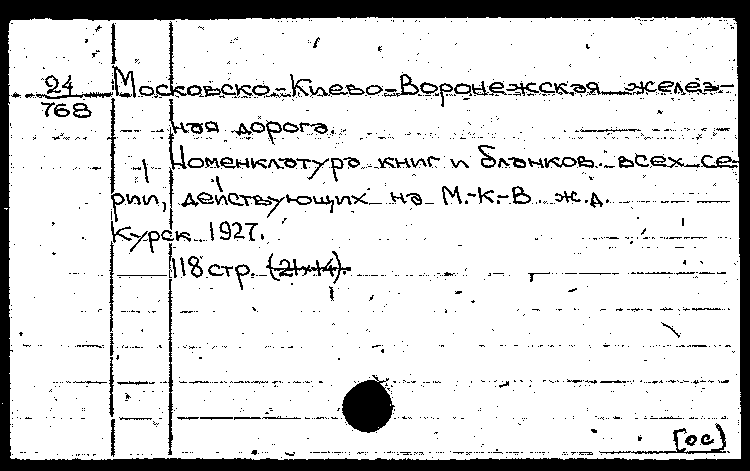 24 Московско-Киево-Воронежская желез-
768
ная дорога.
Номенклатура книг и бланков всех се-
рии, действующих на М.-К.-В. ж.д.
Курск 1927.
118 стр. (21×14).
[ос]